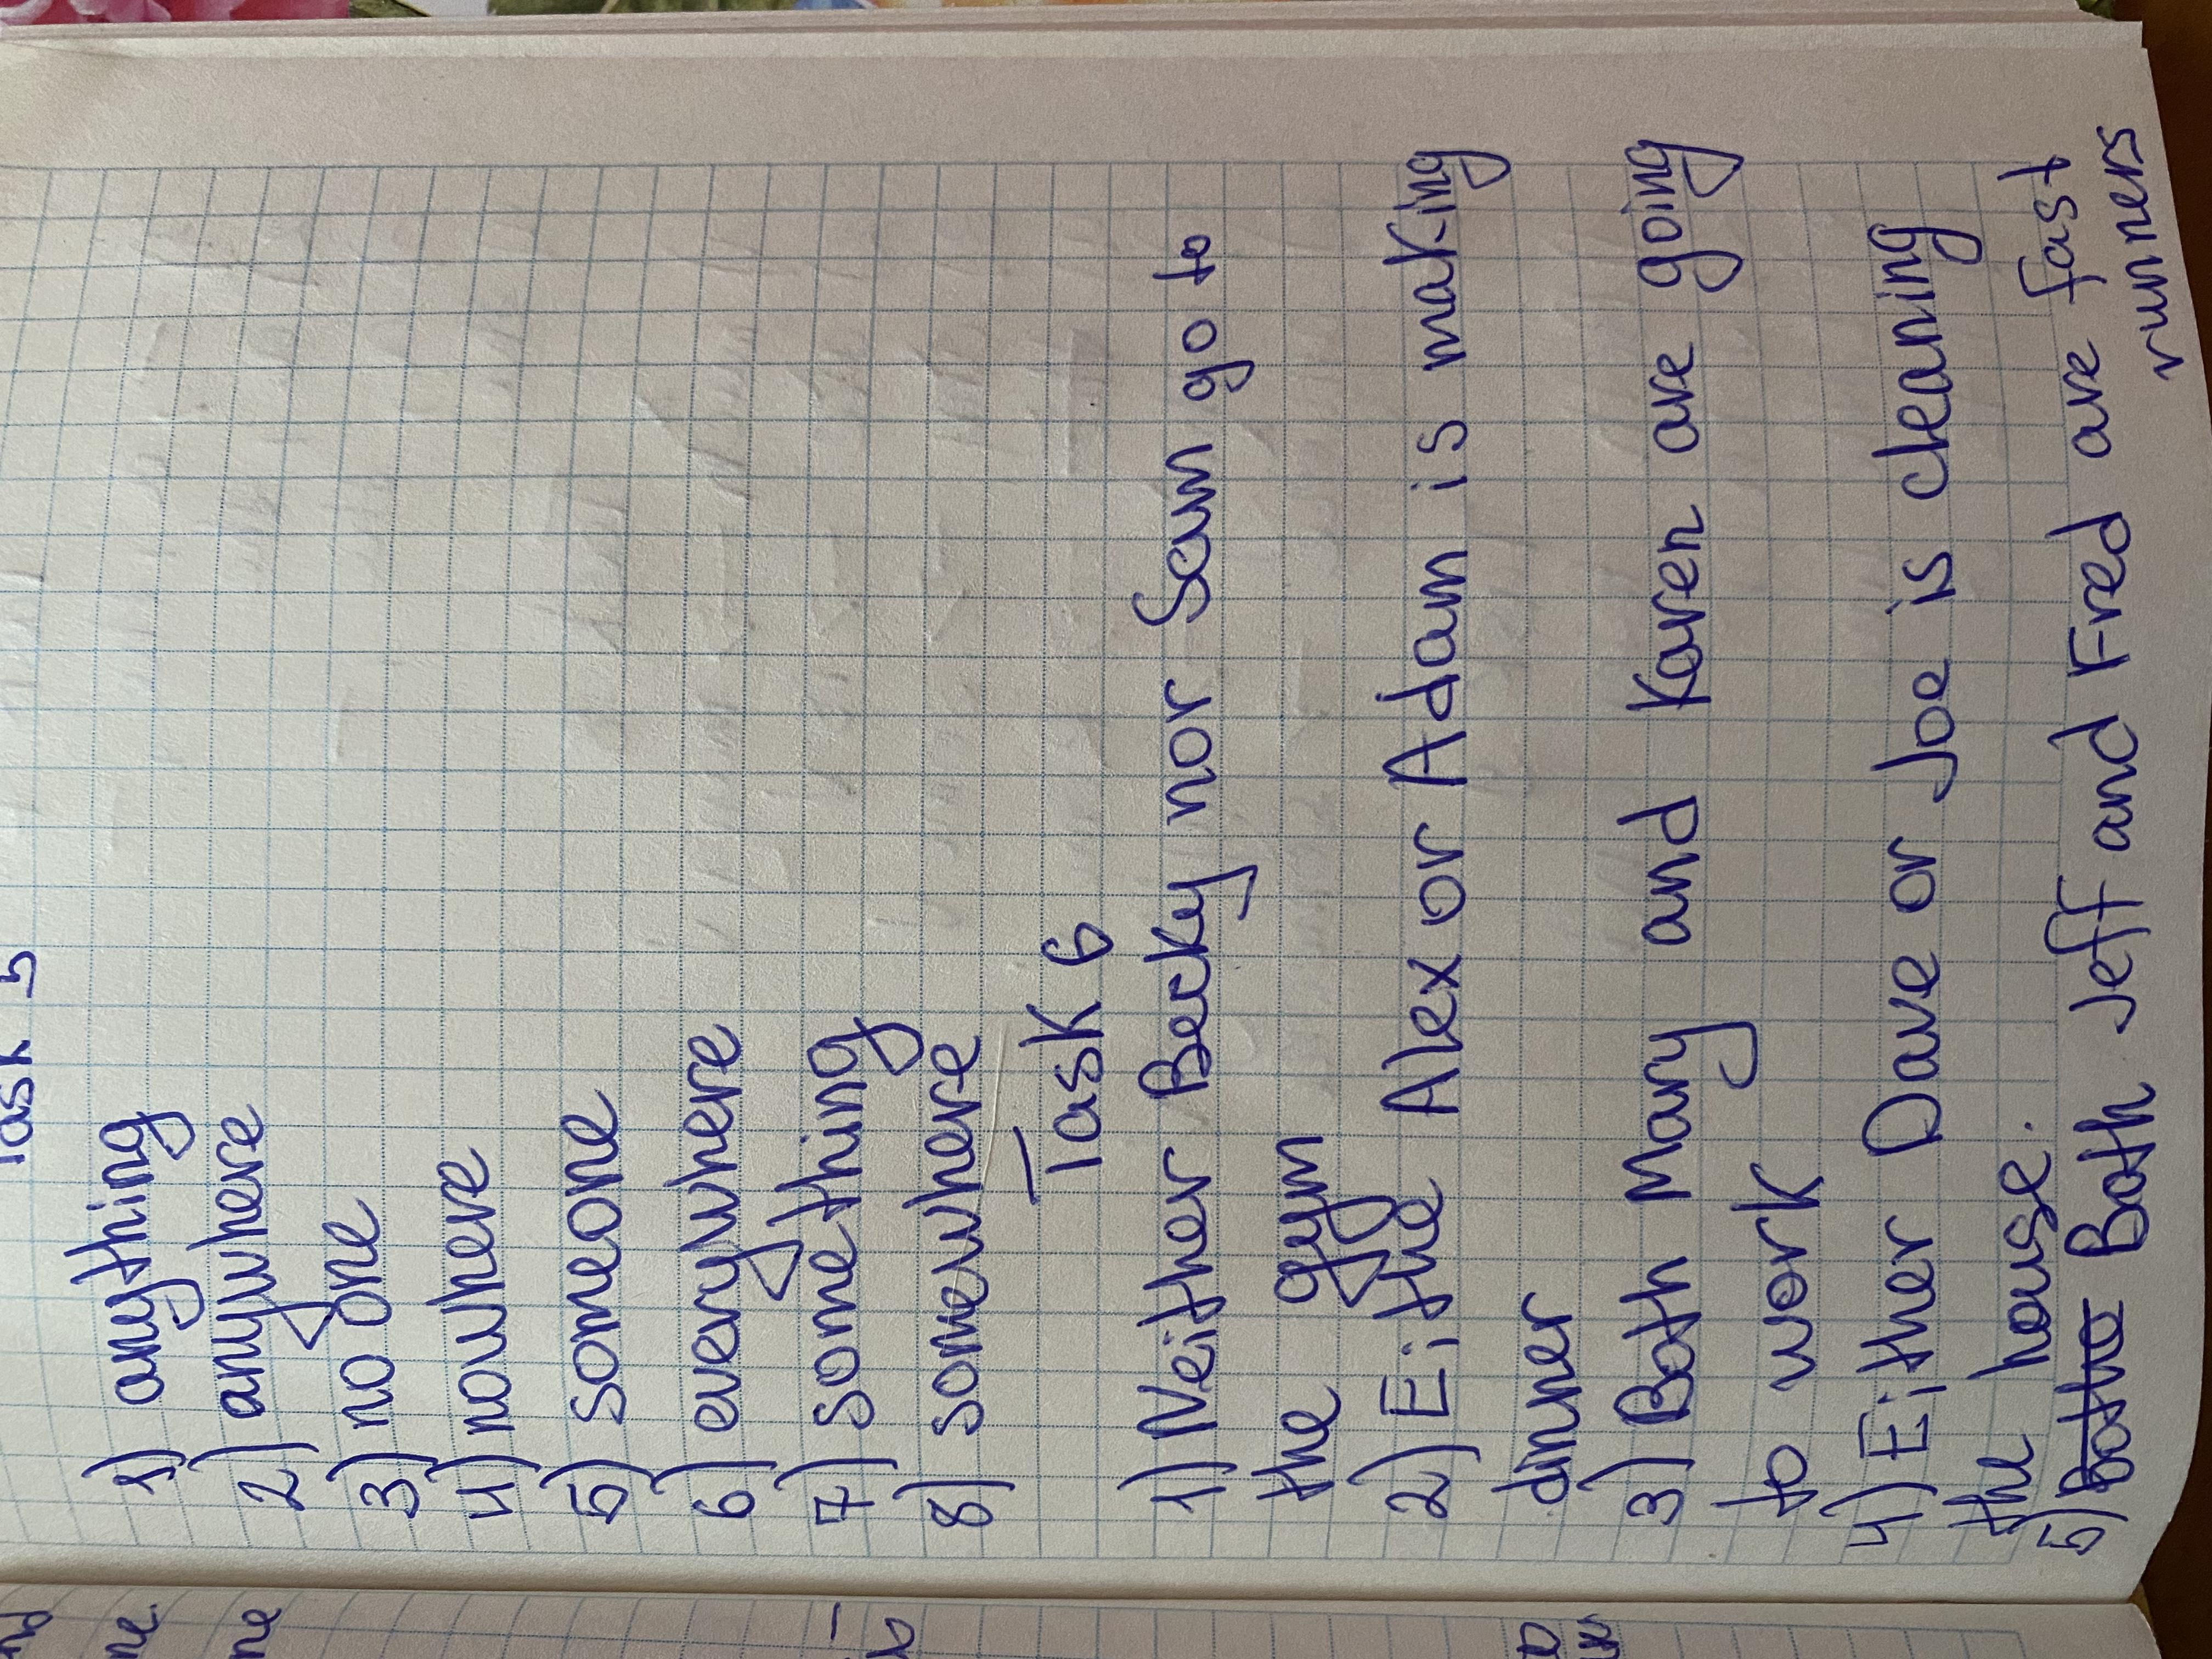 Task 5
1) anything
2) anywhere
3) no one
4) nowhere
5) someone
6) everywhere
7) something
8) somewhere
Task 6
1) Neither Becky nor Sam go to
the gym
2) Eithe Alex or Adam is making
dinner
3) Both Mary and Karen are going
to work
4) Either Dave or Joe is cleaning
the house.
5) Bothe Both Jeff and Fred are fast
runners